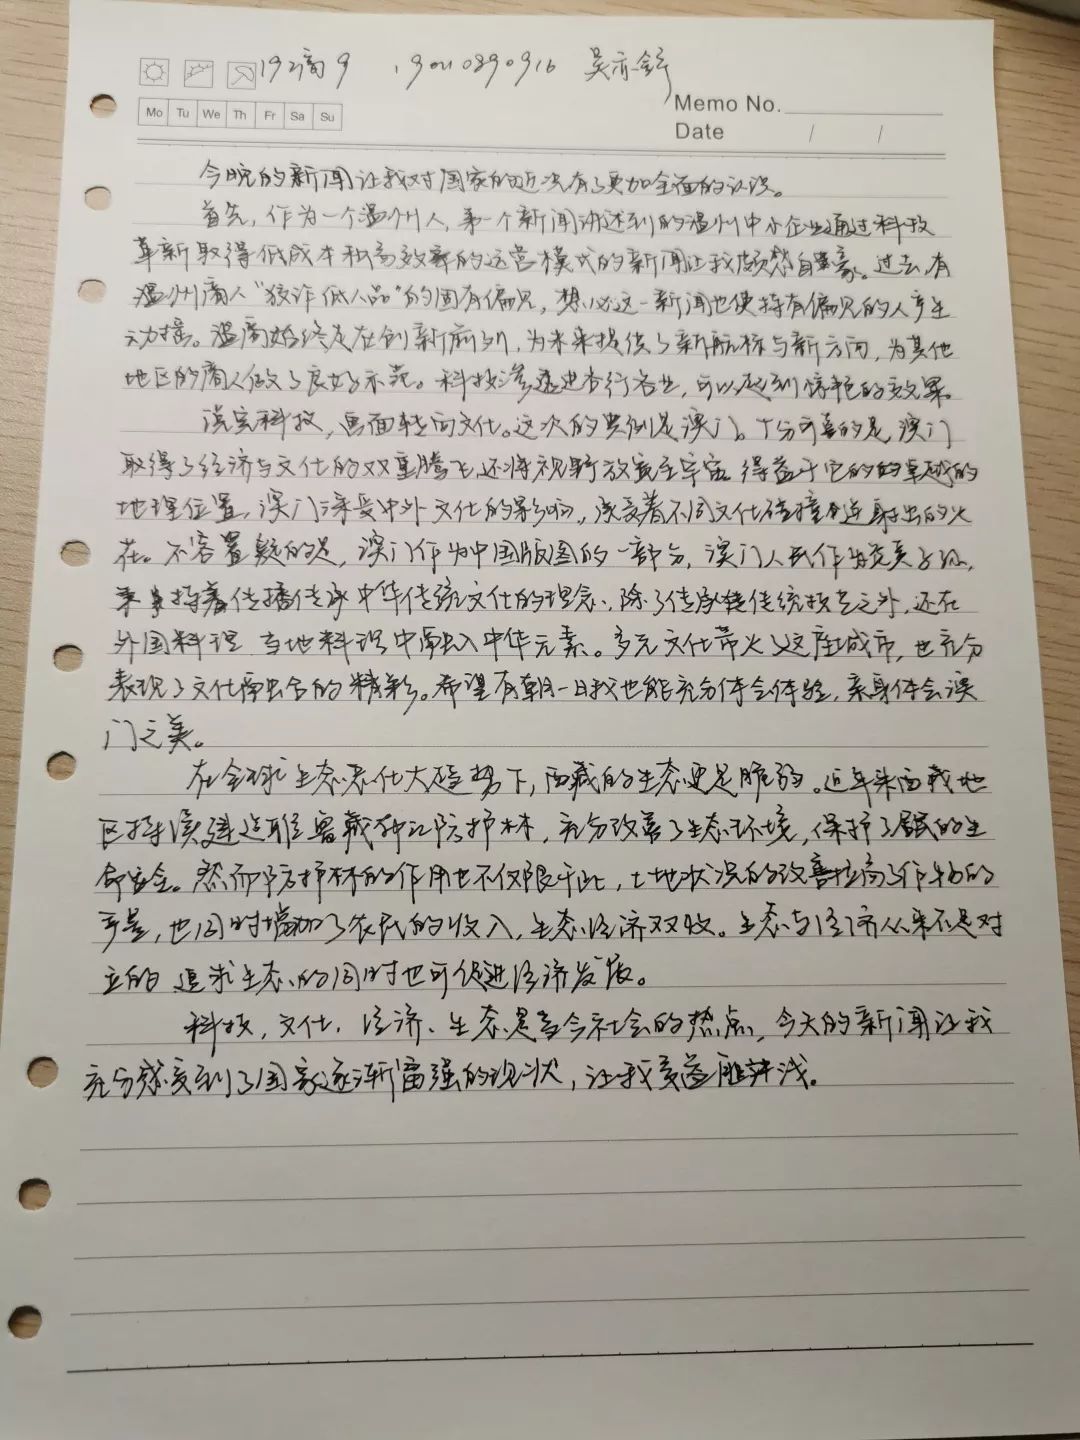 19 9 19040890916 吴亦
Memo No.
Mo Tu We Th Fr Sa Su
Date / /
今晚的新闻让我对国家的近况有了更加全面的认识。
首先，作为一个温州人，第一个新闻讲述到的温州中小企业通过科技
革新取得低成本和高效率的运营模式的新闻让我颇感自豪。过去，有
温州商人“狡诈低人品”的固有偏见，想必这一新闻也使持有偏见的人产生
动摇。温商始终走在创新前列，为未来提供了新航标与新方向，为其他
地区的商人做了良好示范。科技渗透进各行各业，可以起到惊艳的效果。
谈完科技，画面转向文化。这次的典例是澳门。十分可喜的是，澳门
取得了经济与文化的双重腾飞，还将视野放置至宇宙。得益于它的的卓越的
地理位置，澳门深受中外文化的影响，承受着不同文化碰撞迸射出的火
花。不容置疑的是，澳门作为中国版图的一部分，澳门人民作为炎黄子孙，
秉持着传播传承中华传统文化的理念，除了传承传统技艺之外，还在
外国料理、当地料理中融入中华元素。多元文化带火了这座城市，也充分
表现了文化融合的精彩。希望有朝一日我也能充分体会体验，亲身体会澳
门之美。
在全球生态恶化大趋势下，西藏的生态更是脆弱。近年来西藏地
区持续建造雅鲁藏布江防护林，充分改善了生态环境，保护了居民的生
命安全。然而防护林的作用也不仅限于此，土地状况的改善拉高了作物的
产量，也同时增加了农民的收入，生态经济双收。生态与经济从来不是对
立的 追求生态的同时也可促进经济发展。
科技，文化，经济、生态是当今社会的热点，今天的新闻让我
充分感受到了国家逐渐富强的现状，让我受益匪浅。